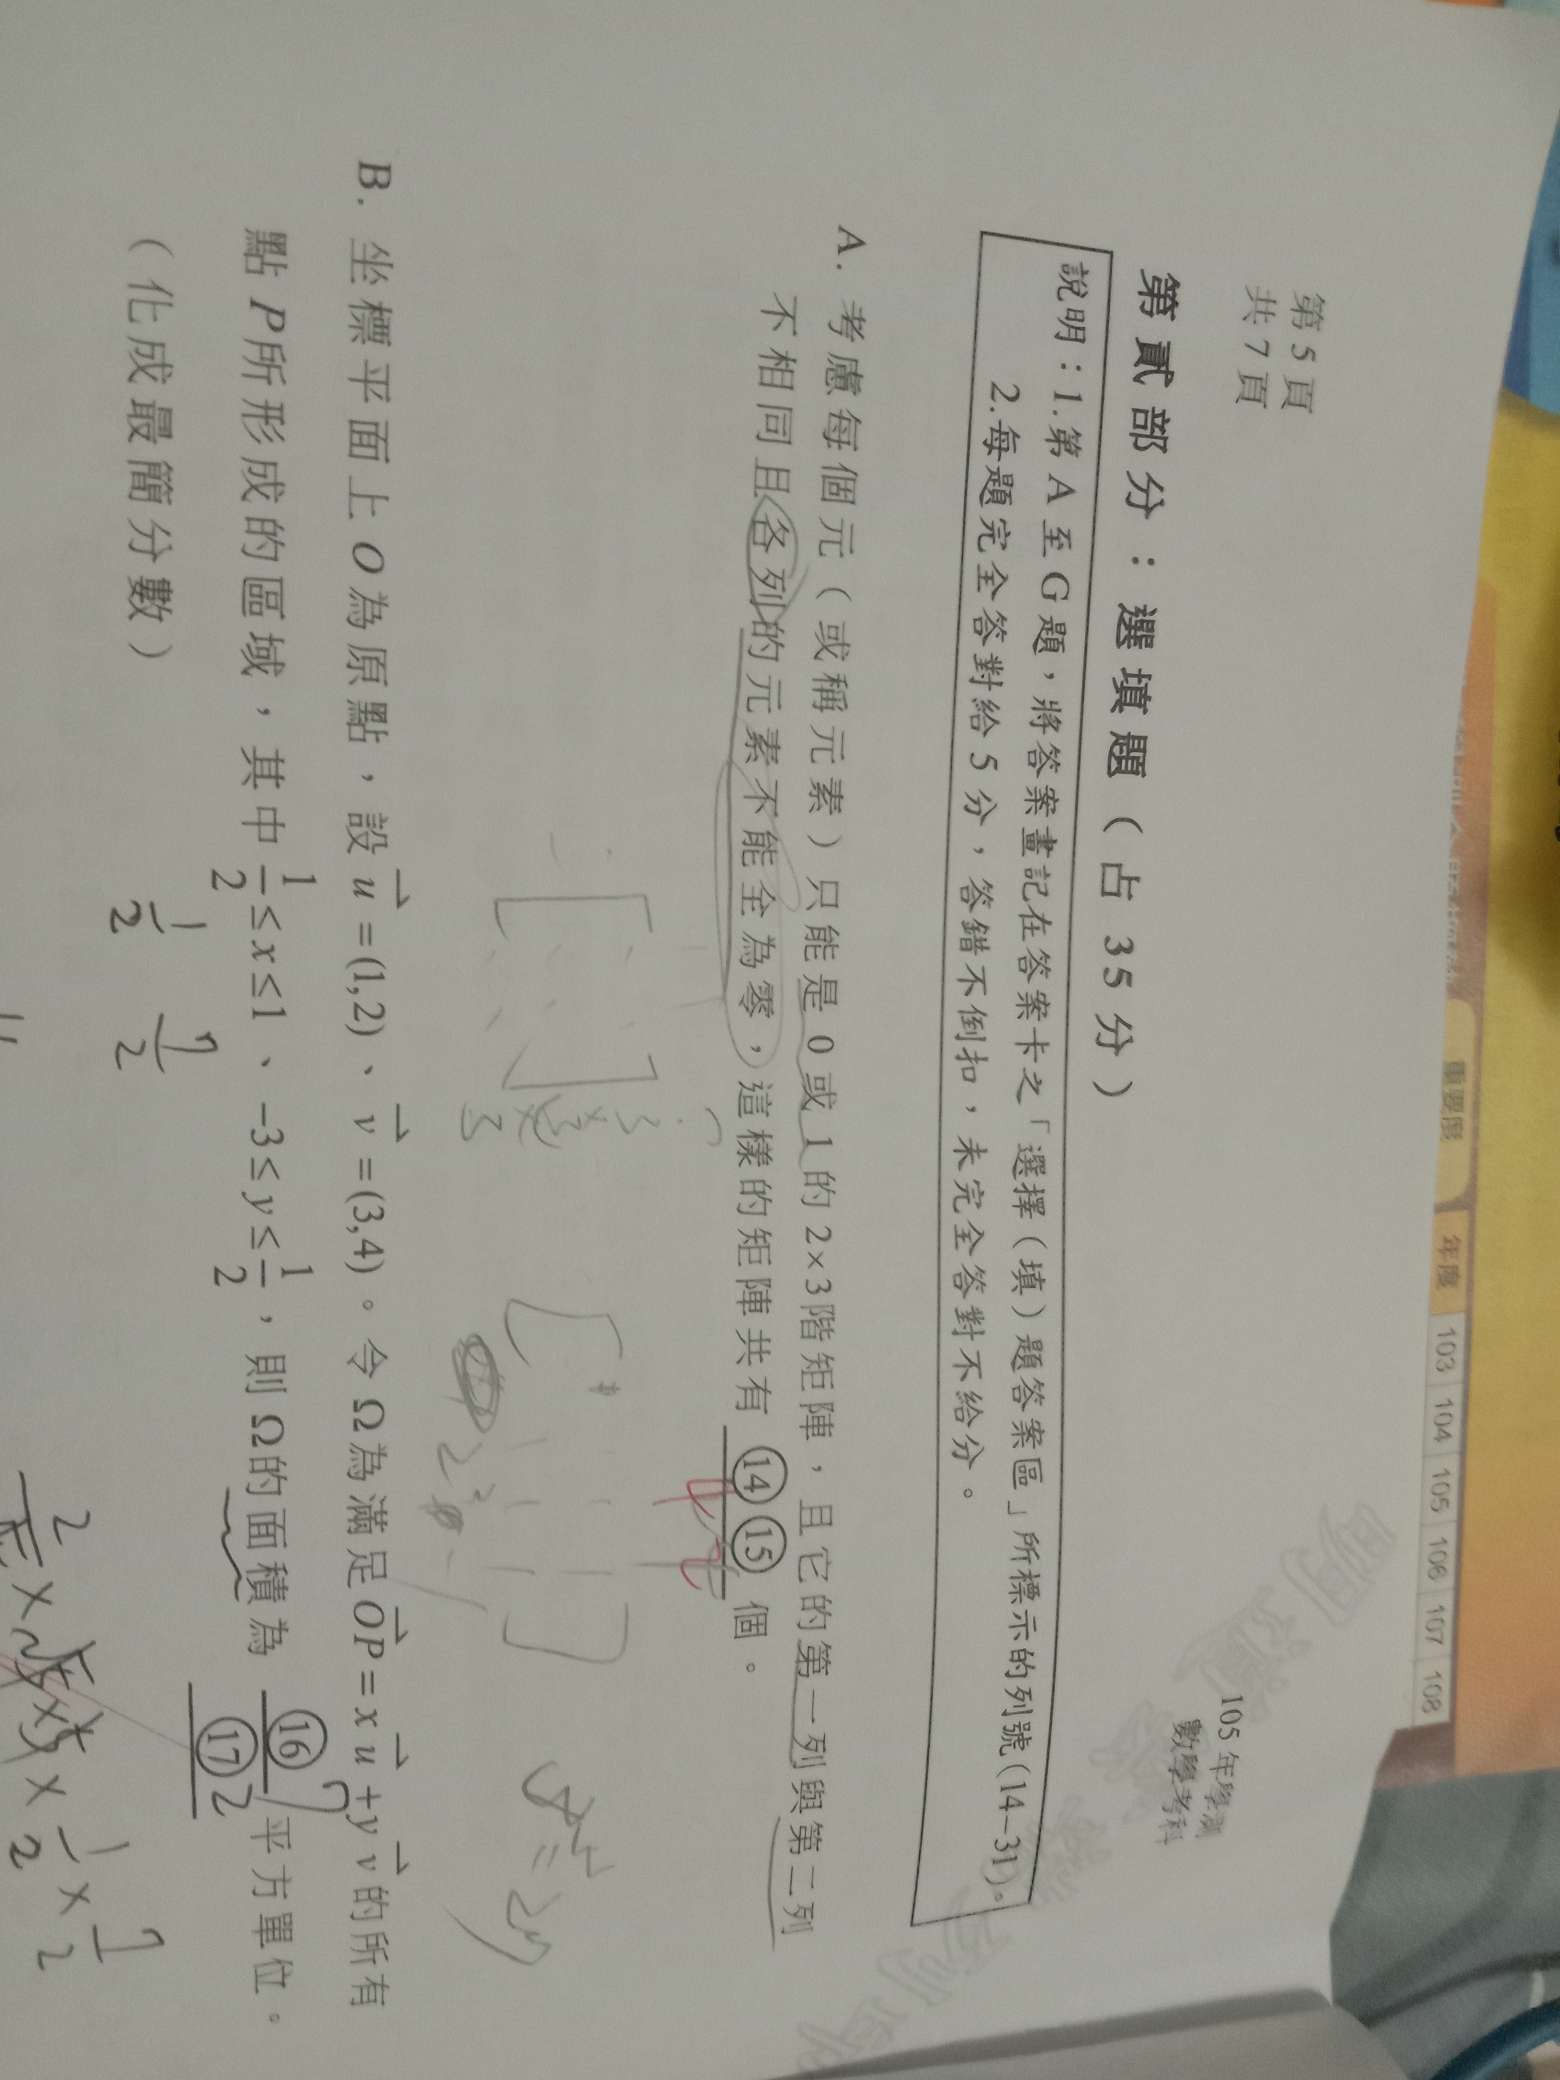 重要假
年度 103 104 105 106 107 108
第 5 頁
共 7 頁
105 年學測
數學考科
第貳部分：選填題（占 35 分）
說明：1.第 A 至 G 題，將答案畫記在答案卡之「選擇（填）題答案區」所標示的列號(14–31)。
2.每題完全答對給 5 分，答錯不倒扣，未完全答對不給分。
A. 考慮每個元（或稱元素）只能是 0 或 1 的 2×3 階矩陣，且它的第一列與第二列
不相同且各列的元素不能全為零，這樣的矩陣共有 ⑭⑮ 個。
42
B. 坐標平面上 O 為原點，設 u⃗ =(1,2)、v⃗ =(3,4)。令 Ω 為滿足 OP⃗ = x u⃗ + y v⃗ 的所有
點 P 所形成的區域，其中 1/2 ≤ x ≤ 1、−3 ≤ y ≤ 1/2，則 Ω 的面積為 ⑯/⑰ 平方單位。
7
2
（化成最簡分數）
1/2 7/2
× 1/2 × 7/2